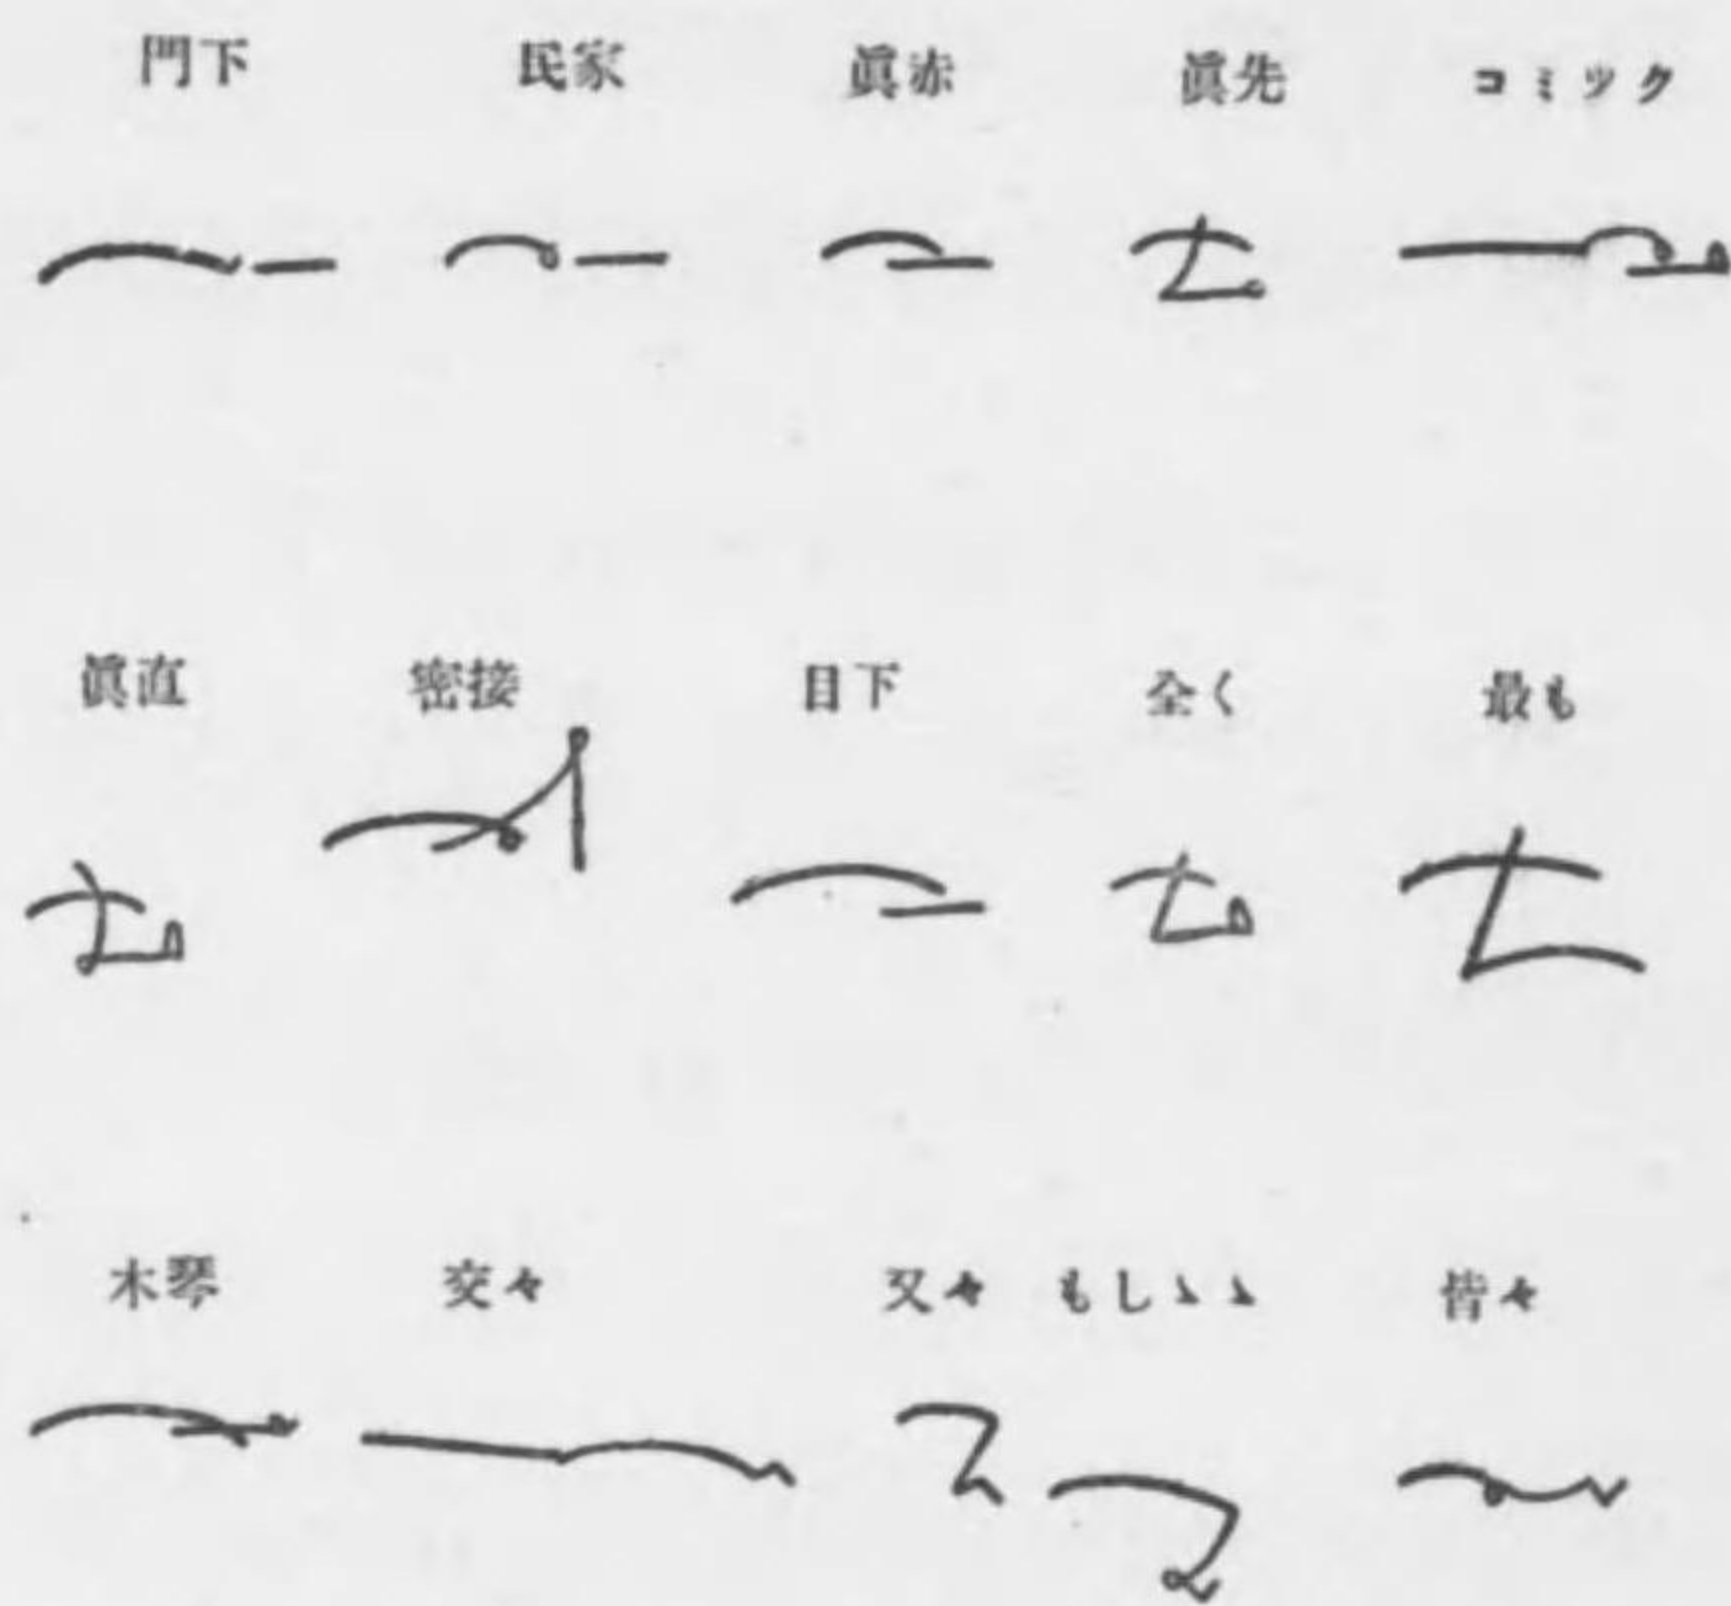 門下 民家 眞赤 眞先 コミック
眞直 密接 目下 全く 最も
木琴 交々 又々 もしゝゝ 皆々